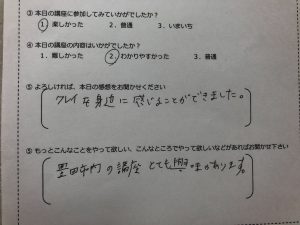 ③本日の講座に参加してみていかがでしたか?
1. 楽しかった 2. 普通 3. いまいち
④本日の講座の内容はいかがでしたか?
1. 難しかった 2. わかりやすかった 3. 普通
⑤よろしければ、本日の感想をお聞かせください
クレイを身近に感じることができました。
⑤もっとこんなことをやって欲しい、こんなところでやって欲しいなどがあればお聞かせ下さい
豊田市内の講座とても興味があります。